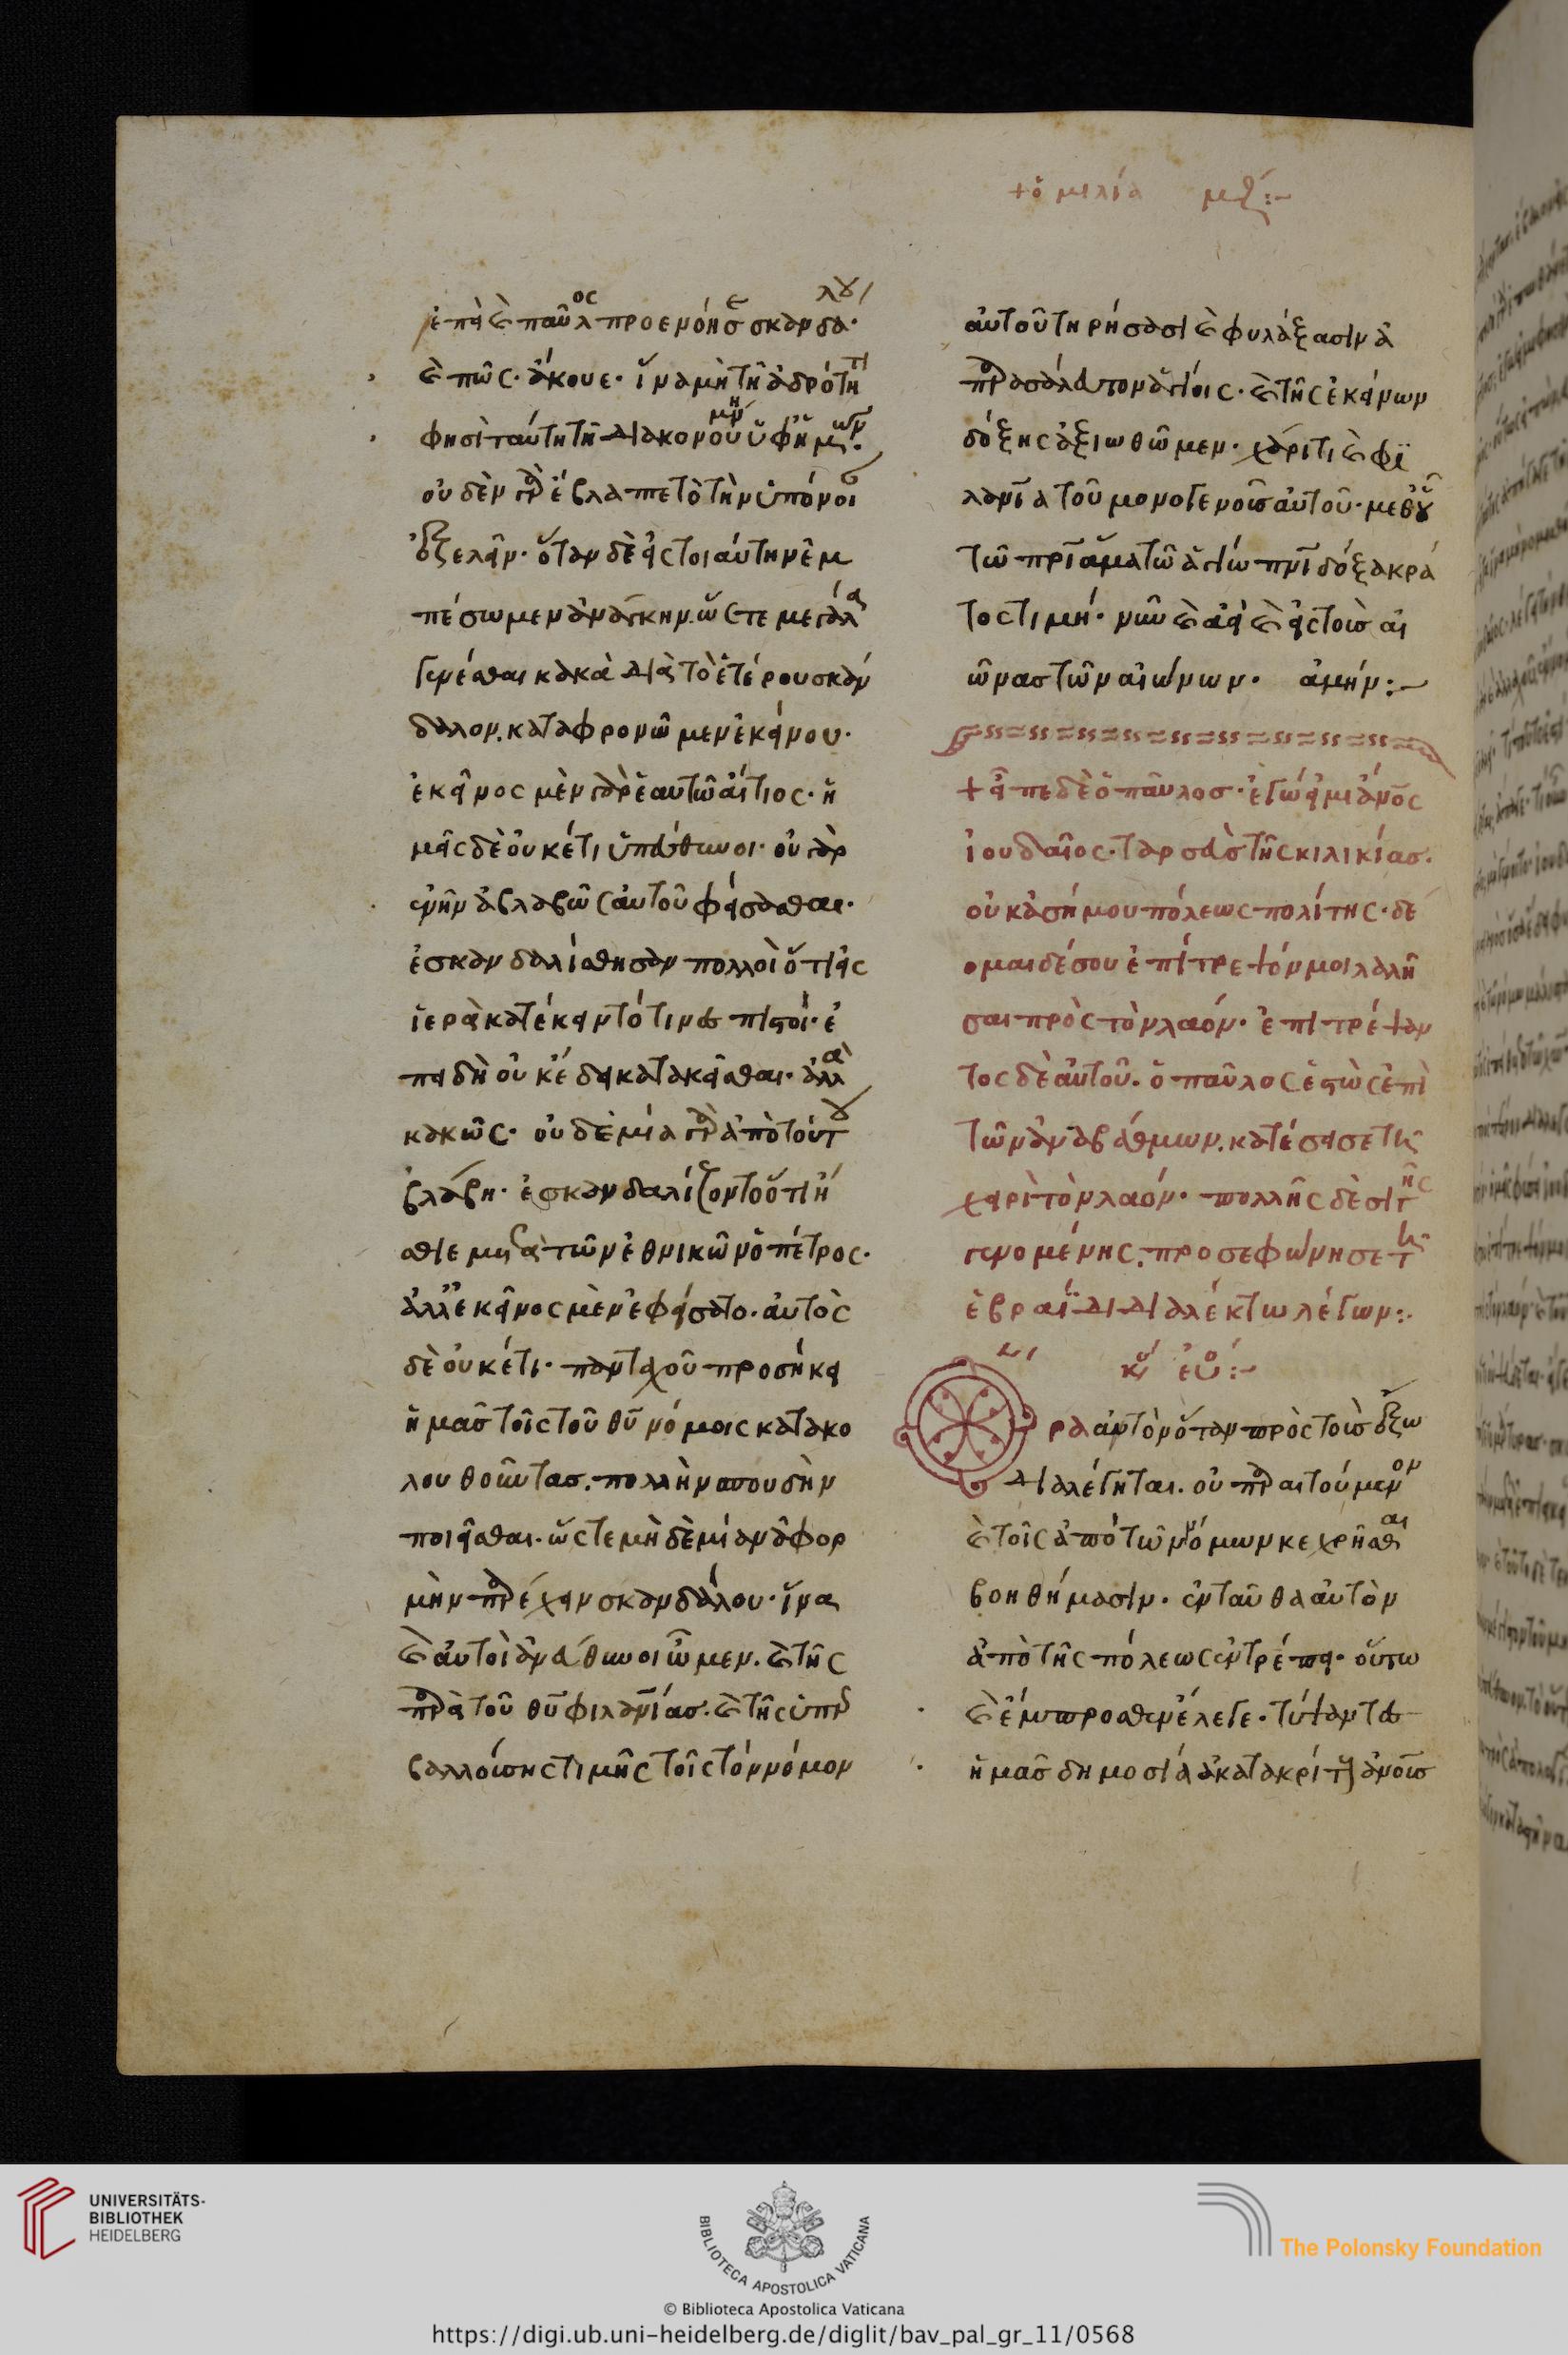 +ὁμιλία μζ:~
ἐπεὶ καὶ παῦλος προενόησε σκανδάλου
καὶ πῶς· ἄκουε· ἵνα μὴ τῇ ἁδρότητι
φησὶ ταύτῃ τῇ διακονουμένῃ ὑφ' ἡμῶν·
οὐδὲν γὰρ ἔβλαπτε τὸ τὴν ὑπόνοιαν
ἐξελεῖν· ὅταν δὲ εἰς τοιαύτην ἐμ
πέσωμεν ἀνάγκην. ὥστε μεγάλα
γενέσθαι κακὰ διὰ τὸ ἑτέρου σκάν
δαλον, καταφρονῶμεν ἐκείνου·
ἐκεῖνος μὲν γὰρ ἑαυτῷ αἴτιος· ἡ
μᾶς δὲ οὐκέτι ὑπεύθυνοι· οὐ γὰρ
ἐνῆν ἀβλαβῶς αὐτοῦ φείσασθαι·
ἐσκανδαλίσθησαν πολλοὶ ὅτι εἰς
ἱερὰ κατέκειντό τινες πιστοί· ἐ
πειδὴ οὐκ ἔδει κατακεῖσθαι· ἀλλὰ
κακῶς· οὐδὲ μία γὰρ ἀπὸ τούτου
βλάβη· ἐσκανδαλίζοντο ὅτι ἤ
σθιε μετὰ τῶν ἐθνικῶν ὁ πέτρος·
ἀλλ' ἐκεῖνος μὲν ἐφείσατο. αὐτὸς
δὲ οὐκέτι· πανταχοῦ προσήκει
ἡμᾶς τοῖς τοῦ θυ νόμοις κατακο
λουθοῦντας. πολλὴν σπουδὴν
ποιεῖσθαι. ὥστε μὴδὲ μίαν ἀφορ
μὴν παρέχειν σκανδάλου· ἵνα
καὶ αὐτοὶ ἀνεύθυνοι ὦμεν. καὶ τῆς
παρὰ τοῦ θυ φιλανίας. καὶ τῆς ὑπερ
βαλλούσης τιμῆς τοῖς τὸν νόμον
αὐτοῦ τηρήσασι καὶ φυλάξασιν ἀ
πολαύσωμεν ἁγίοις· καὶ τῆς ἐκείνων
δόξης ἀξιωθῶμεν· χάριτι καὶ φι
λανία τοῦ μονογενοῦς αὐτοῦ· μεθ' οὗ
τῷ πρι ἅμα τῷ ἁγίῳ πνι δόξα κρά
τος τιμή· νῦν καὶ ἀεὶ καὶ εἰς τοὺς αἰ
ῶνας τῶν αἰώνων· ἀμήν:~
+εἶπε δὲ ὁ παῦλος· ἐγώ εἰμι ἄνος
ἰουδαῖος· ταρσεὺς τῆς κιλικίας.
οὐκ ἀσήμου πόλεως πολίτης· δέ
ομαι δέ σου ἐπίτρεψόν μοι λαλῆ
σαι πρὸς τὸν λαόν· ἐπιτρέψαν
τος δὲ αὐτοῦ. ὁ παῦλος ἑστὼς ἐπὶ
τῶν ἀναβάθμων. κατέσεισε τῇ
χειρὶ τὸν λαόν· πολλῆς δὲ σιγῆς
γενομένης. προσεφώνησε τῇ
ἑβραΐδι διαλέκτῳ λέγων:·
Ὅρα αὐτὸν ὅταν πρὸς τοὺς ἔξω
διαλέγηται. οὐ παραιτούμενον
καὶ τοῖς ἀπὸ τῶν νόμων κεχρῆσθαι
βοηθήμασιν. ἐνταῦθα αὐτὸν
ἀπὸ τῆς πόλεως ἐντρέπει· οὕτω
καὶ ἔμπροσθεν ἔλεγε· τύψαντες
ἡμᾶς δημοσίᾳ ἀκατακρίτους ἀνους
UNIVERSITÄTS-
BIBLIOTHEK
HEIDELBERG
BIBLIOTECA APOSTOLICA VATICANA
The Polonsky Foundation
© Biblioteca Apostolica Vaticana
https://digi.ub.uni-heidelberg.de/diglit/bav_pal_gr_11/0568